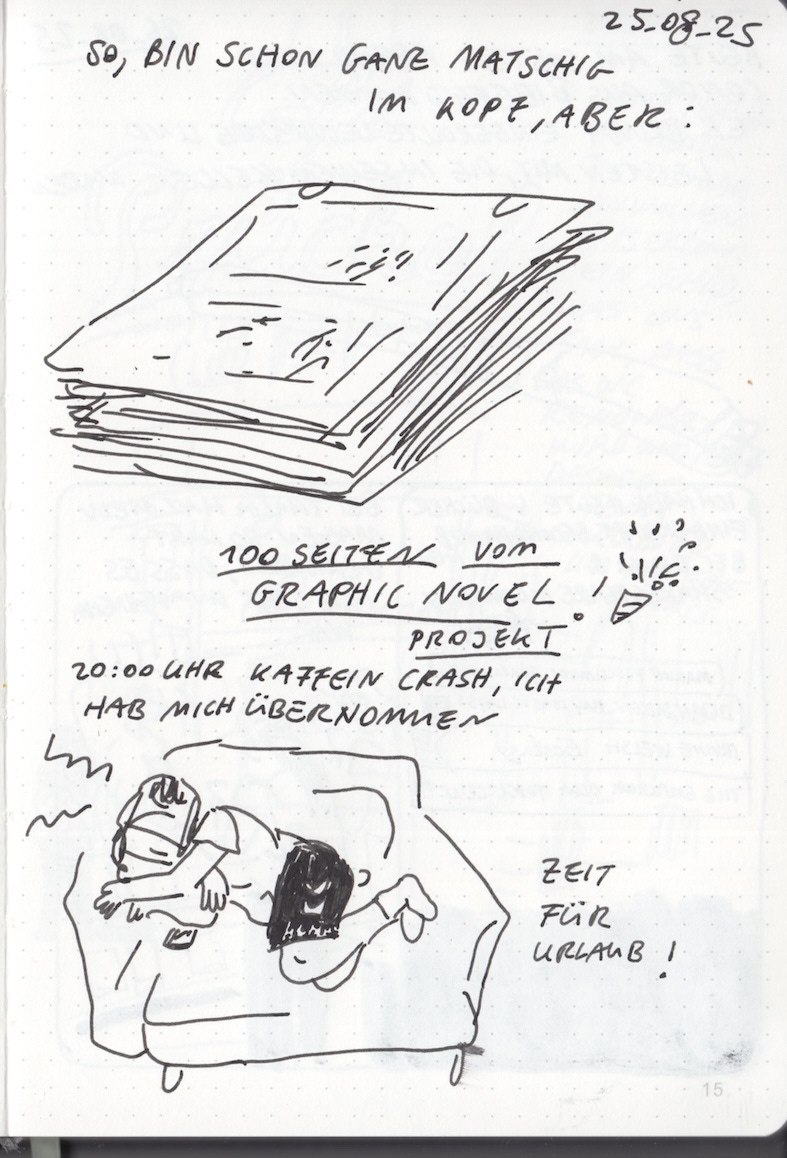 25_08_25
SO, BIN SCHON GANZ MATSCHIG
IM KOPF, ABER:
100 SEITEN VOM
GRAPHIC NOVEL!
PROJEKT
20:00 UHR KAFFEIN CRASH, ICH
HAB MICH ÜBERNOMMEN
ZEIT
FÜR
URLAUB!
15